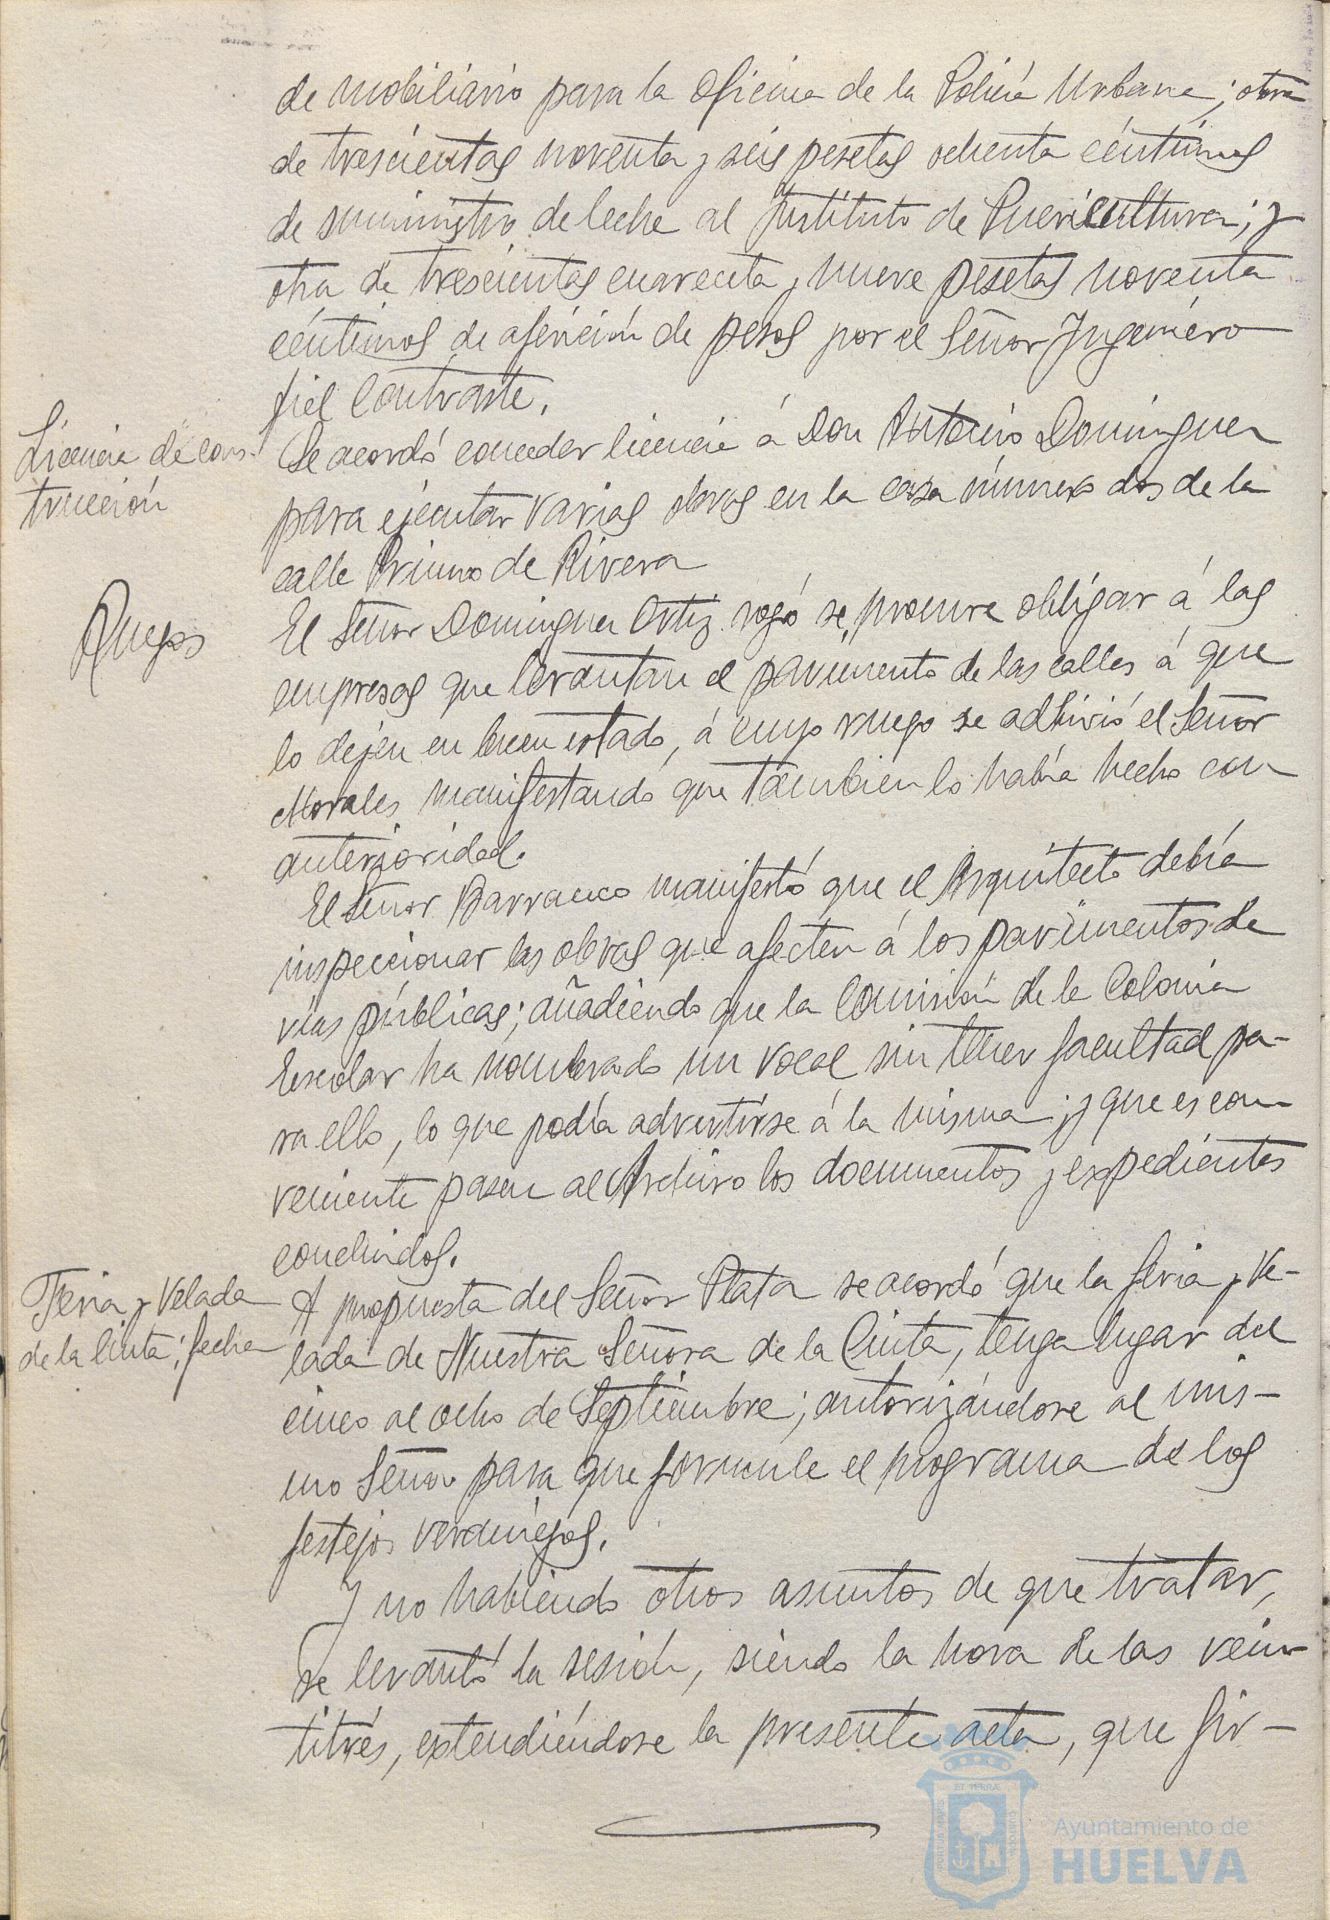 de mobiliario para la oficina de la Policia Urbana; otra
de trescientas noventa y seis pesetas ochenta céntimos
de suministro de leche al Instituto de Puericultura; y
otra de trescientas cuarenta y nueve pesetas noventa
céntimos de afericion de pesas por el Señor Ingeniero
fiel Contraste.
Licencia de cons-
trucción
Se acordó conceder licencia á Don Antonio Dominguez
para ejecutar varias obras en la casa número dos de la
calle Primo de Rivera
Ruegos
El Señor Dominguez Ortiz rogó se procure obligar á las
empresas que levantan el pavimento de las calles á que
lo dejen en buen estado, á cuyo ruego se adhirió el Señor
Morales manifestando que tambien lo había hecho con
anterioridad.
El Señor Barranco manifestó que el Arquitecto debía
inspeccionar las obras que afecten á los pavimentos de
vías públicas; añadiendo que la Comisión de la Colonia
Escolar ha nombrado un vocal sin tener facultad pa-
ra ello, lo que podía advertirse á la misma; y que es con
veniente pasen al Archivo los documentos y expedientes
concluidos.
Feria y Velada
de la Cinta; fecha
A propuesta del Señor Plata se acordó que la feria y Ve-
lada de Nuestra Señora de la Cinta, tenga lugar del
cinco al ocho de Septiembre; autorizándose al mis-
mo Señor para que formule el programa de los
festejos veraniegos.
Y no habiendo otros asuntos de que tratar,
se levantó la sesión, siendo la hora de las vein
titrés, extendiéndose la presente acta, que fir-
Ayuntamiento de
HUELVA